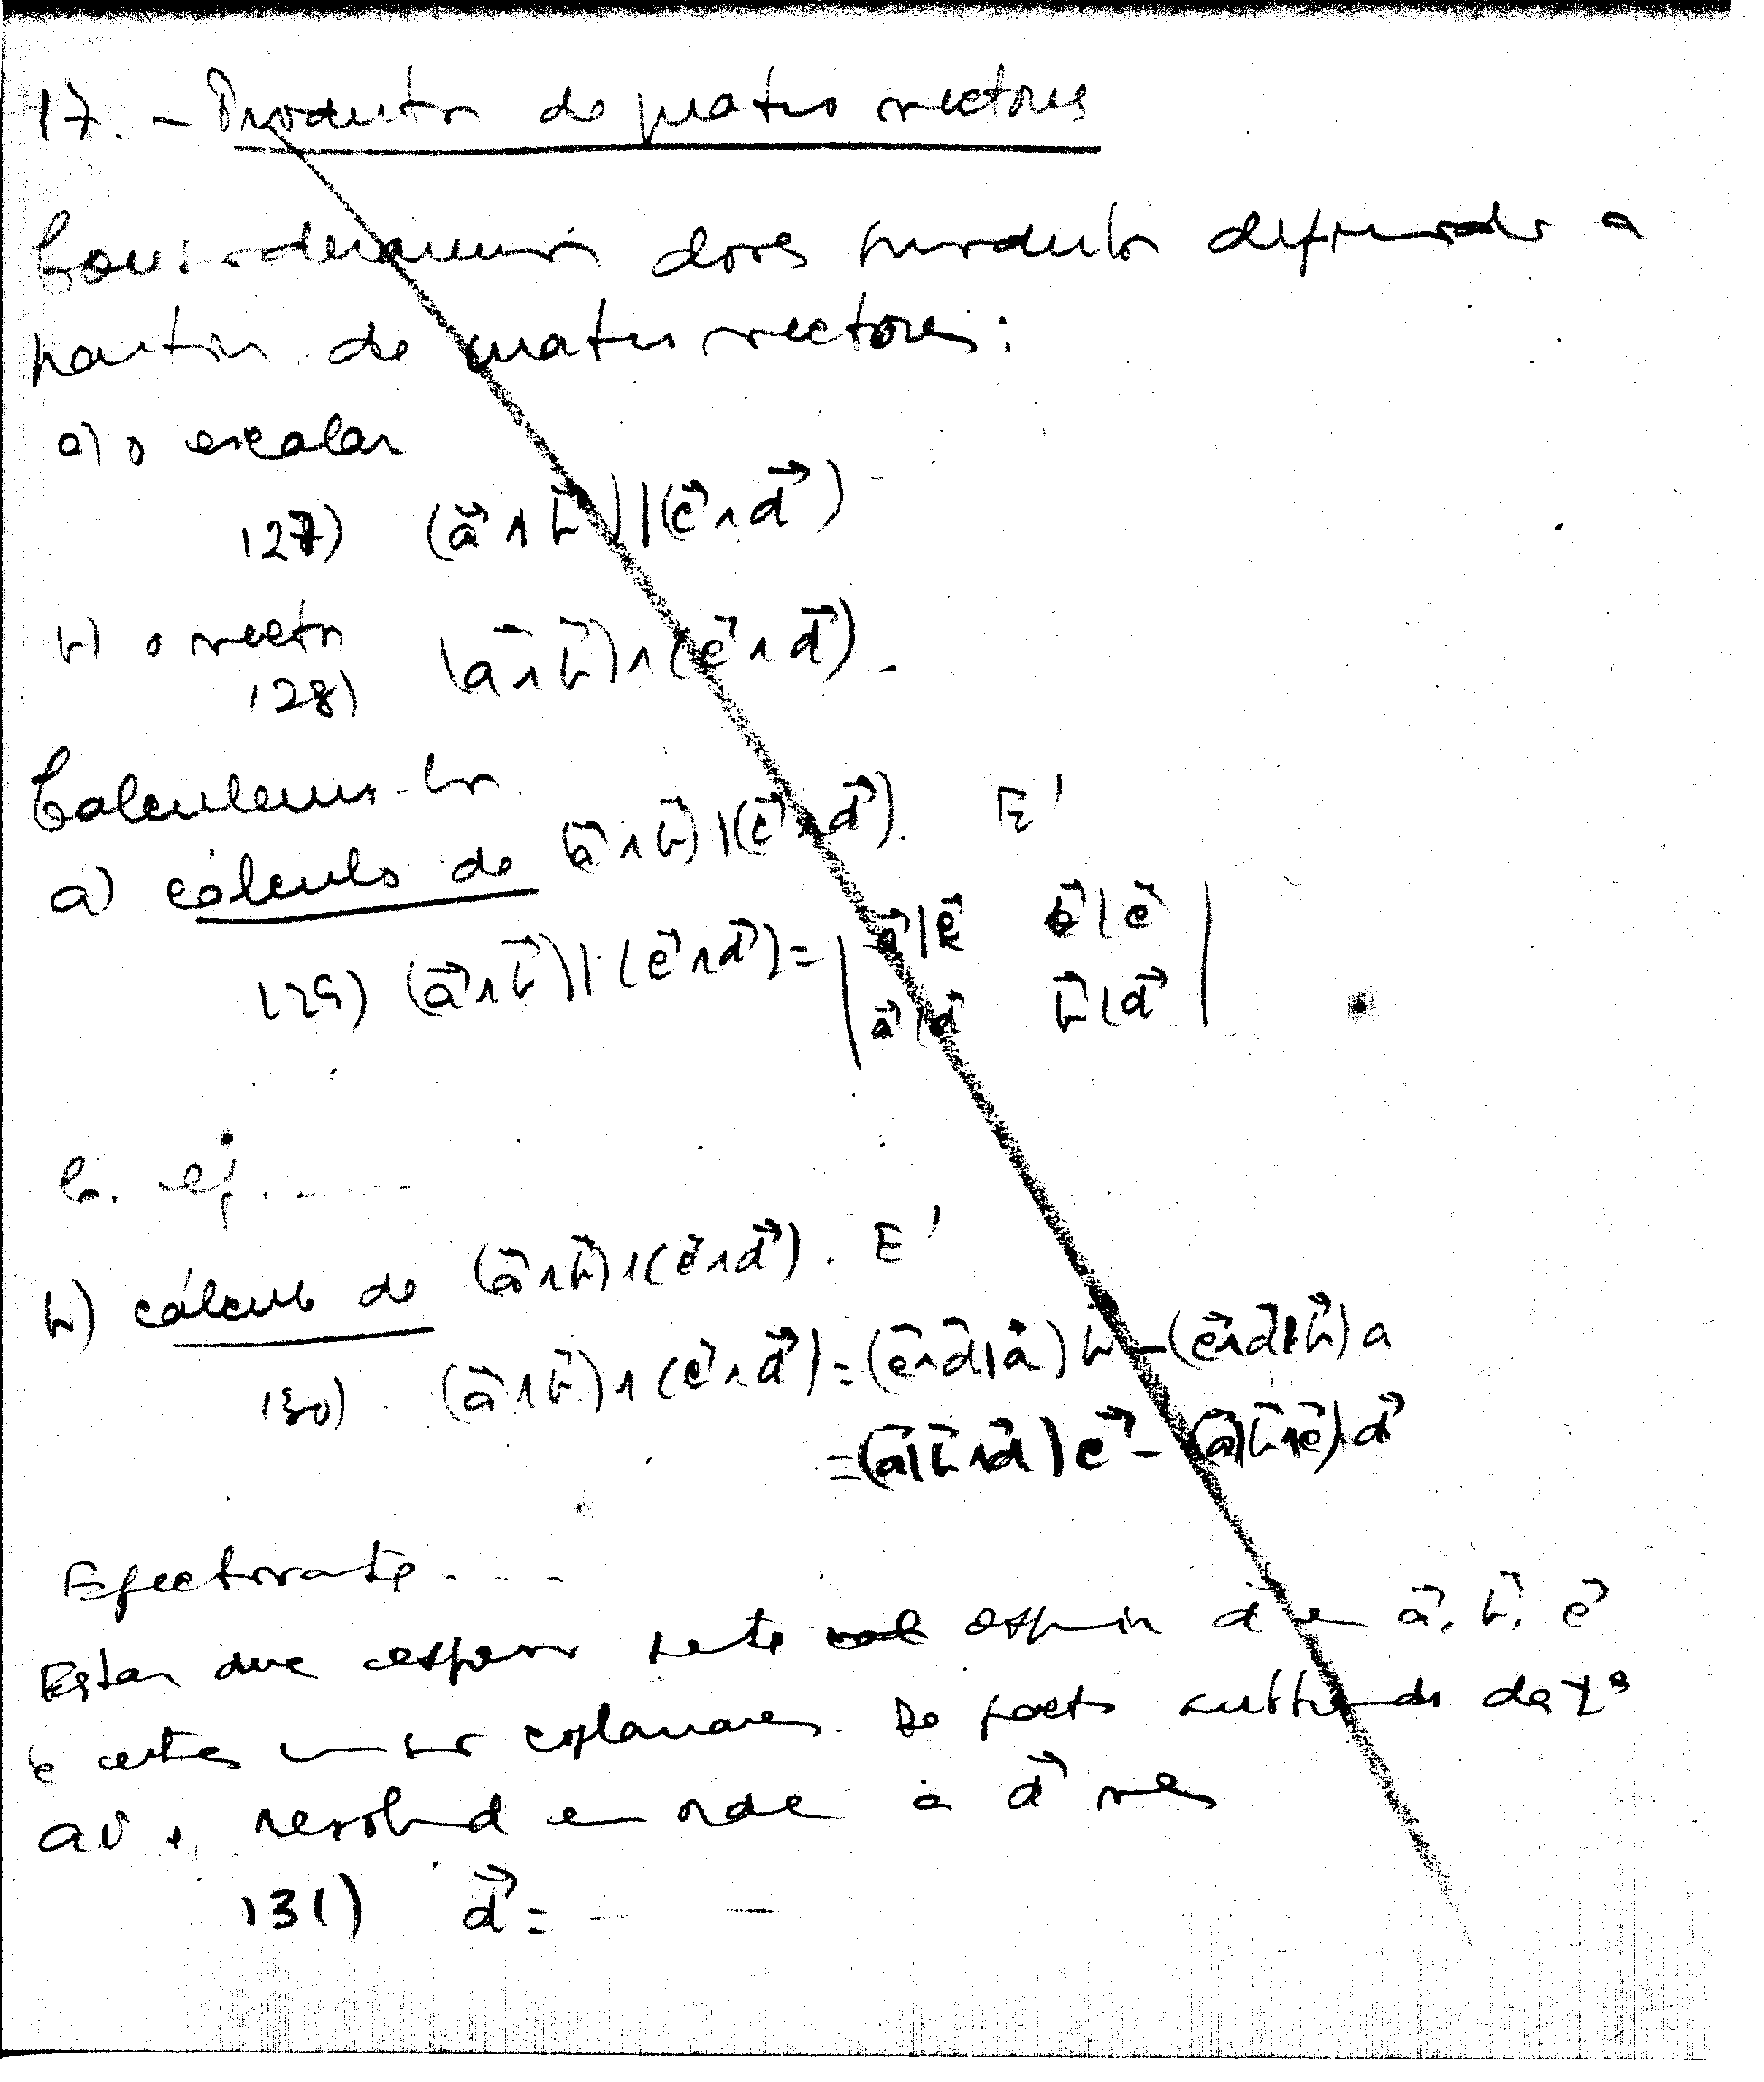 17. - Produto de quatro vectores
Consideraremos dois produtos definidos a
partir de quatro vectores:
a) o escalar
127) (a⃗ ∧ b⃗) | (c⃗ ∧ d⃗)
b) o vector
128) (a⃗ ∧ b⃗) ∧ (c⃗ ∧ d⃗).
Calculemo-los.
a) cálculo de (a⃗ ∧ b⃗) | (c⃗ ∧ d⃗). E'
129) (a⃗ ∧ b⃗) | (c⃗ ∧ d⃗) = | a⃗|c⃗ b⃗|c⃗ |
| a⃗|d⃗ b⃗|d⃗ |
C. ej. ...
b) cálculo de (a⃗ ∧ b⃗) ∧ (c⃗ ∧ d⃗). E'
130) (a⃗ ∧ b⃗) ∧ (c⃗ ∧ d⃗) = (c⃗ ∧ d⃗ | a⃗) b⃗ - (c⃗ ∧ d⃗ | b⃗) a
= (a⃗ | b⃗ ∧ d⃗) c⃗ - (a⃗ | b⃗ ∧ c⃗) d⃗
Efectivate ...
Estas duas d⃗ em a⃗, b⃗, c⃗
coplanares. De facto subtraindo da 1ª
a d⃗ vem
131) d⃗ = - -